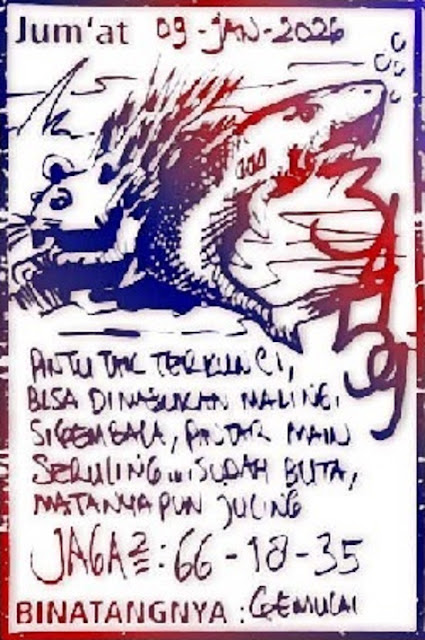 Jum'at 09-JAN-2026
PINTU TAK TERKUNCI,
BISA DIMASUKAN MALING.
SIGEMBALA, PINTAR MAIN
SERULING... SUDAH BUTA,
MATANYA PUN JULING
JAGA2=: 66-18-35
BINATANGNYA : GEMULAI